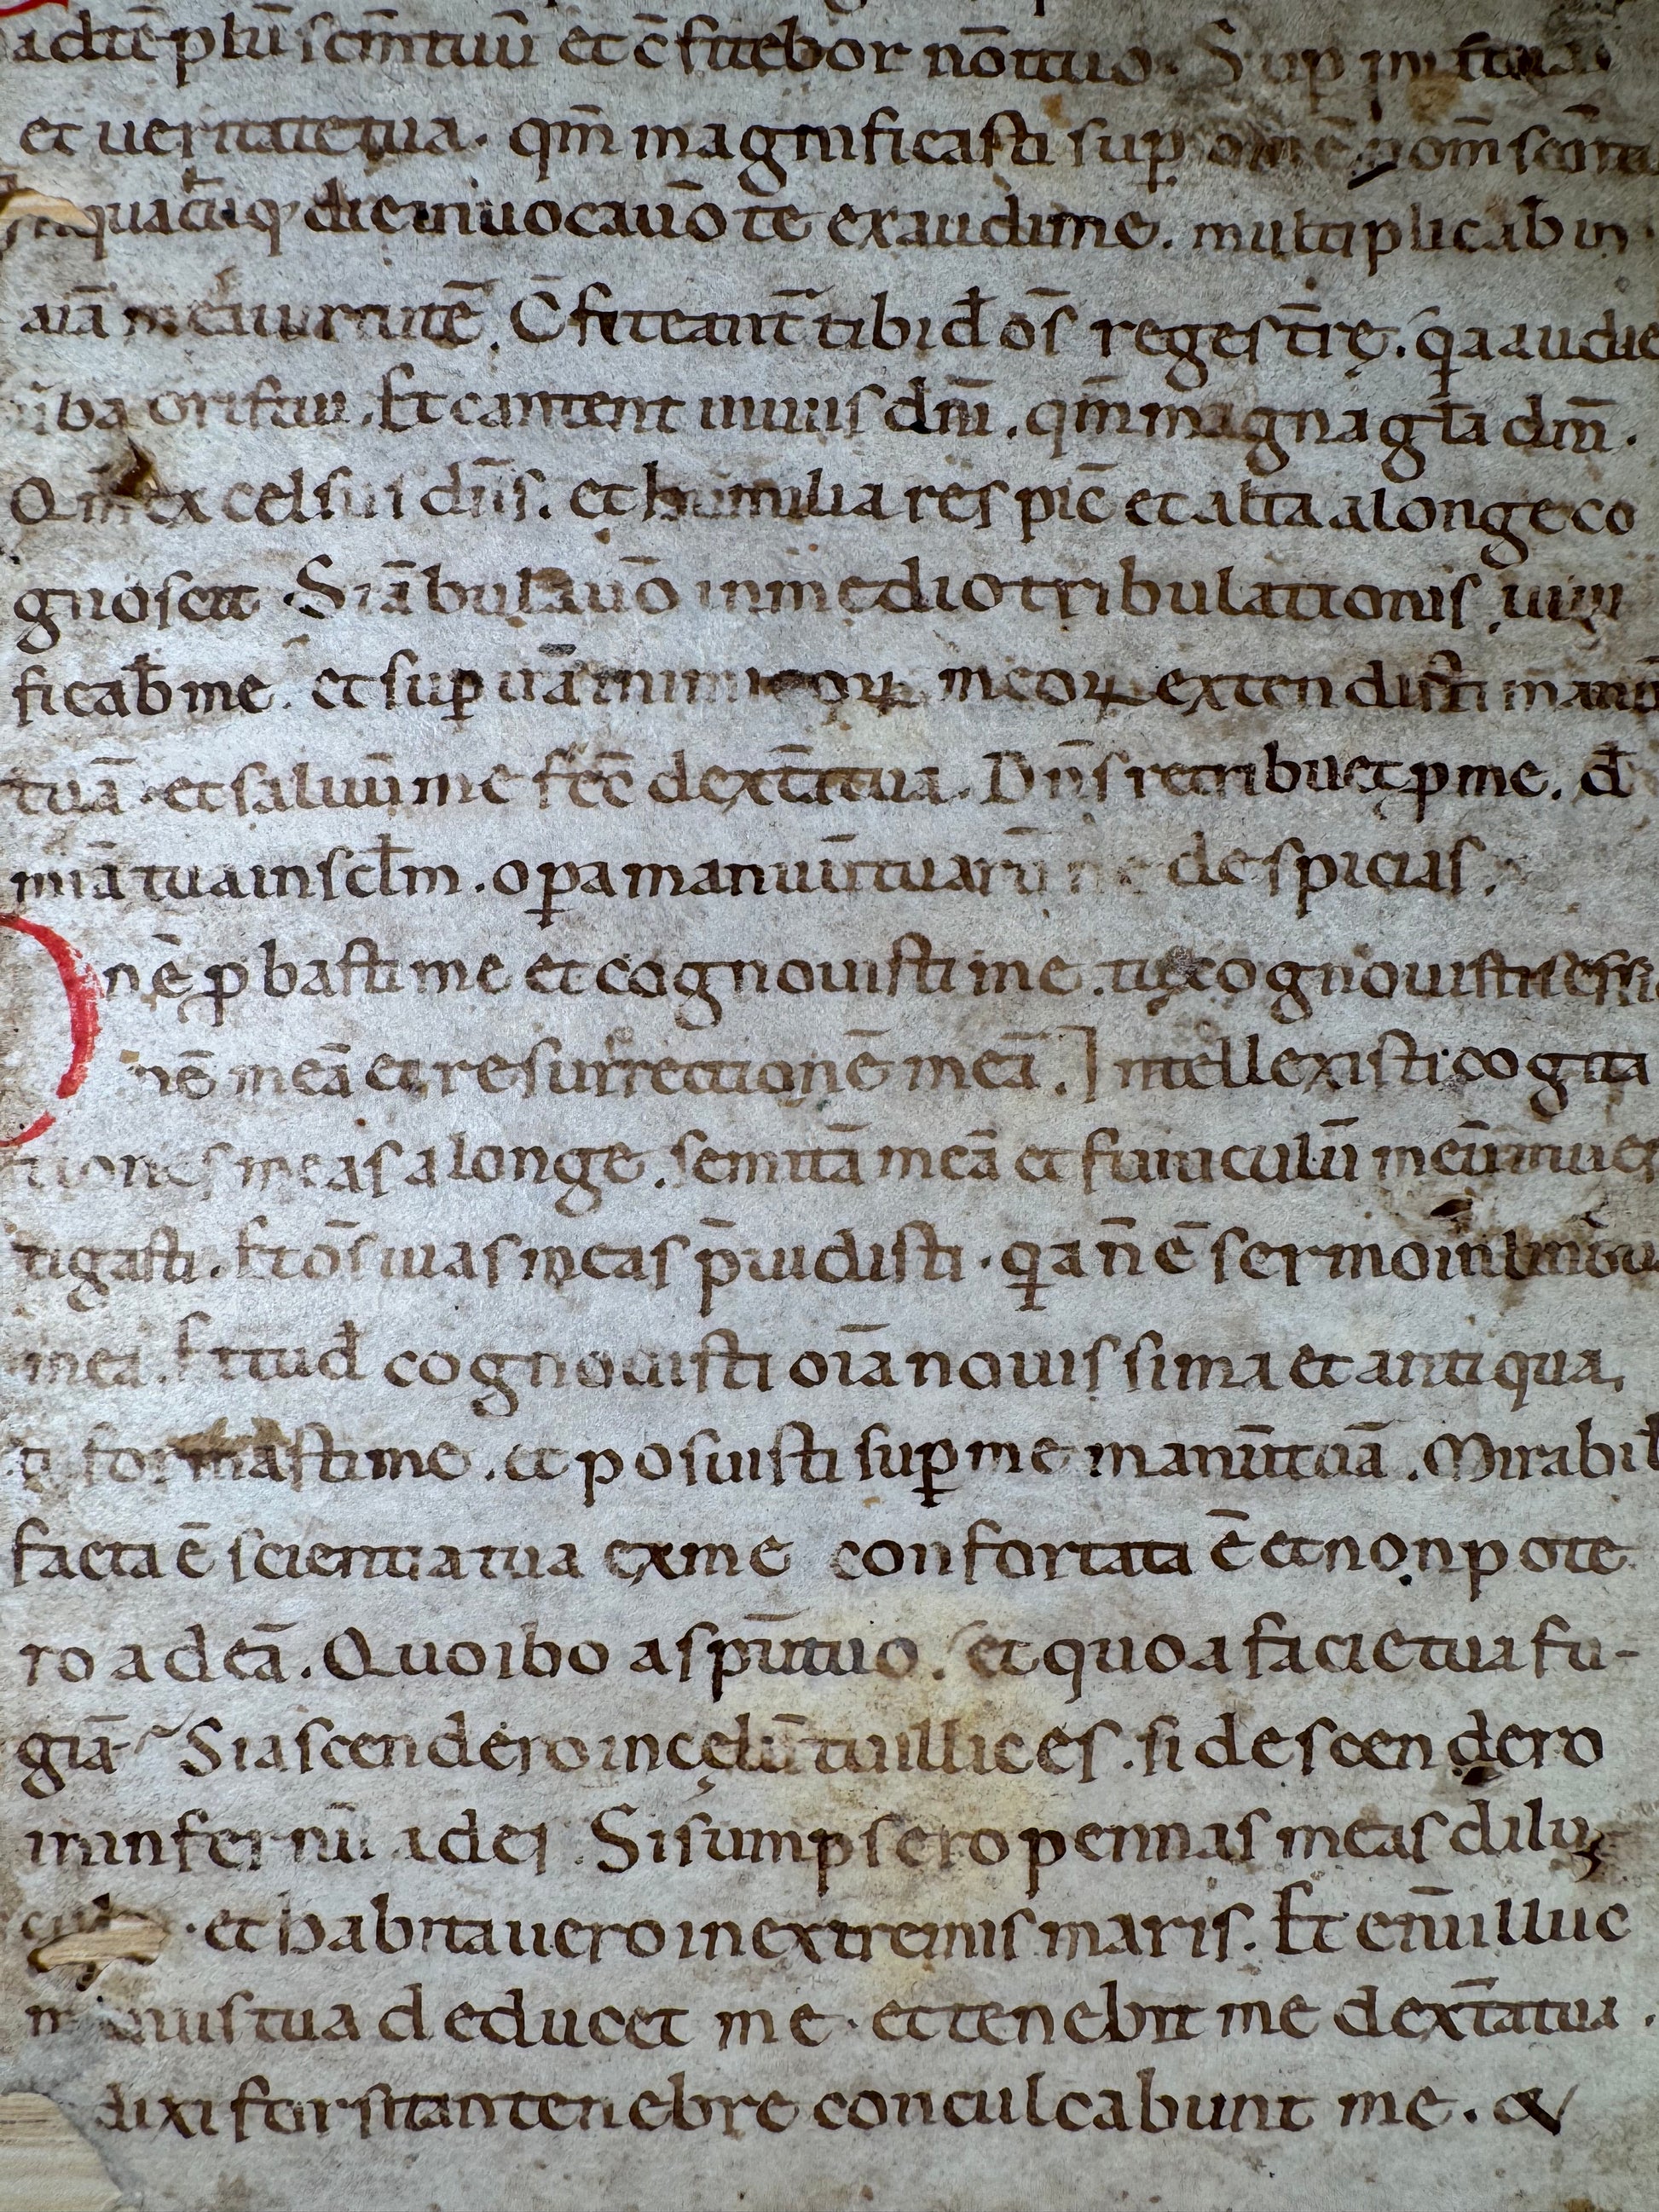 adtē plū scm̄ tuū et c̄fitebor nōi tuo. Sup mia tua
et ueritate tua. qm̄ magnificasti sup om̄e nom̄ scm̄ tu
In quacūq die inuocauō te exaudi me. multiplicab in
aīa mea uirtutē. C̄fiteant tibi d̄ oīs reges tr̄ę. qa audie
ūba oris tui. Et cantent in uiis dn̄i. qm̄ magna gl̄a dn̄i.
Qm̄ excelsus dn̄s. et humilia respic̄ et alta a longe co
gnoscit. Si ābulauō in medio tribulationis uiui
ficab̄ me. et sup irā inimicoꝝ meoꝝ extendisti manū
tuā. et saluū me fec̄ dext̄a tua. Dn̄s retribuet ꝓ me. d̄
mīa tua in scl̄m. opa manuū tuarū ne despicias.
Dn̄e ꝓbasti me et cognouisti me. tu cognouisti sessi
onē meā et resurrectionē meā. Intellexisti cogita
tiones meas a longe. semitā meā et funiculū meū inues
tigasti. Et oīs uias meas p̄uidisti. qa n̄ ē sermo in lingua
mea. Et tu d̄ cognouisti oīa nouissima et antiqua.
tu formasti me. et posuisti sup me manū tuā. Mirabil
facta ē scientia tua ex me confortata ē et non pote
ro ad eā. Quo ibo a spū tuo. et quo a facie tua fu-
giā. Si ascendero in cęlū tu illic es. si descendero
in infernū ades. Si sumpsero pennas meas dilu
et habitauero in extremis maris. Et enī illuc
manus tua deducet me. et tenebit me dext̄a tua.
dixi forsitan tenebre conculcabunt me. &